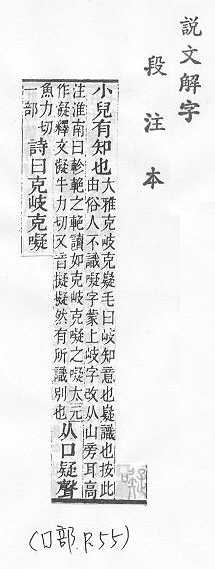 説文解字
段注本
小兒有知也大雅克岐克嶷毛曰岐知意也嶷識也按此
由俗人不識㘈字蒙上岐字改从山旁耳高
注淮南曰軫軳之軳讀如克岐克㘈之㘈太元
作儗釋文儗牛力切又音擬擬然有所識別也从口疑聲
魚力切
一部詩曰克岐克㘈
(口部.P.55)